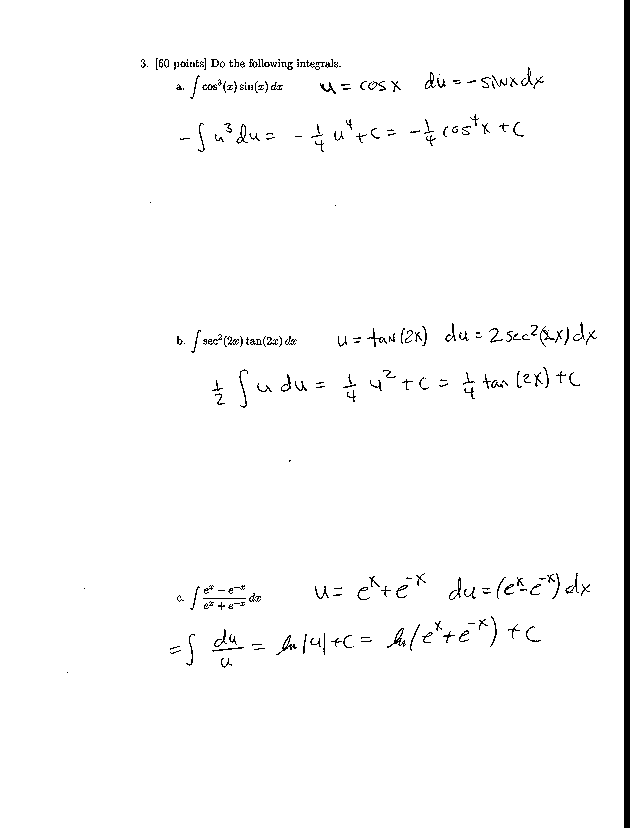 3. [60 points] Do the following integrals.
a. ∫ cos³(x) sin(x) dx u = cos x du = - sinx dx
- ∫ u³ du = - 1/4 u⁴ + C = - 1/4 cos⁴x + C
b. ∫ sec²(2x) tan(2x) dx u = tan (2x) du = 2 sec²(2x) dx
1/2 ∫ u du = 1/4 u² + C = 1/4 tan (2x) + C
c. ∫ (eˣ − e⁻ˣ)/(eˣ + e⁻ˣ) dx u = eˣ + e⁻ˣ du = (eˣ - e⁻ˣ) dx
= ∫ du/u = ln |u| + C = ln (eˣ + e⁻ˣ) + C